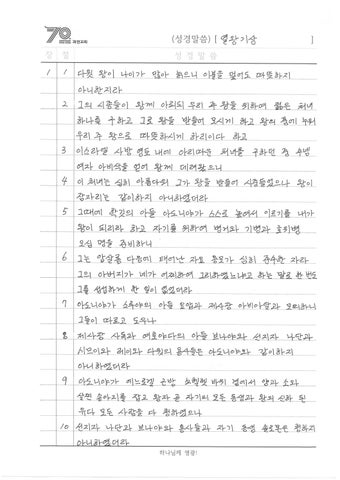 70 과천교회
(성경말씀) [ 열왕기상 ]
장 절 성 경 말 씀
1 1 다윗 왕이 나이가 많아 늙으니 이불을 덮어도 따뜻하지
아니한지라
2 그의 시종들이 왕께 아뢰되 우리 주 왕을 위하여 젊은 처녀
하나를 구하고 그로 왕을 받들어 모시게 하고 왕의 품에 누워
우리 주 왕으로 따뜻하시게 하리이다 하고
3 이스라엘 사방 영토 내에 아리따운 처녀를 구하던 중 수넴
여자 아비삭을 얻어 왕께 데려왔으니
4 이 처녀는 심히 아름다워 그가 왕을 받들어 시중들었으나 왕이
잠자리는 같이하지 아니하였더라
5 그때에 학깃의 아들 아도니야가 스스로 높여서 이르기를 내가
왕이 되리라 하고 자기를 위하여 병거와 기병과 호위병
오십 명을 준비하니
6 그는 압살롬 다음에 태어난 자요 용모가 심히 준수한 자라
그의 아버지가 네가 어찌하여 그리하였느냐고 하는 말로 한 번도
그를 섭섭하게 한 일이 없었더라
7 아도니야가 스루야의 아들 요압과 제사장 아비아달과 모의하니
그들이 따르고 도우나
8 제사장 사독과 여호야다의 아들 브나야와 선지자 나단과
시므이와 레이와 다윗의 용사들은 아도니야와 같이하지
아니하였더라
9 아도니야가 에느로겔 근방 소헬렛 바위 곁에서 양과 소와
살찐 송아지를 잡고 왕자 곧 자기의 모든 동생과 왕의 신하 된
유다 모든 사람을 다 청하였으나
10 선지자 나단과 브나야와 용사들과 자기 동생 솔로몬은 청하지
아니하였더라
하나님께 영광!